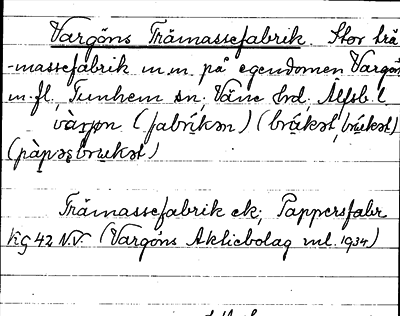 Vargöns Trämassefabrik. Stor trä
-massefabrik m.m. på egendomen Vargön
m.fl., Tunhem sn, Väne hd, Älfsb. l
(fabríkən) (brúkət, brúkət)
Trämassefabrik ek; Pappersfabr
KG 42 N.V. (Vargöns Aktiebolag ml. 1934)